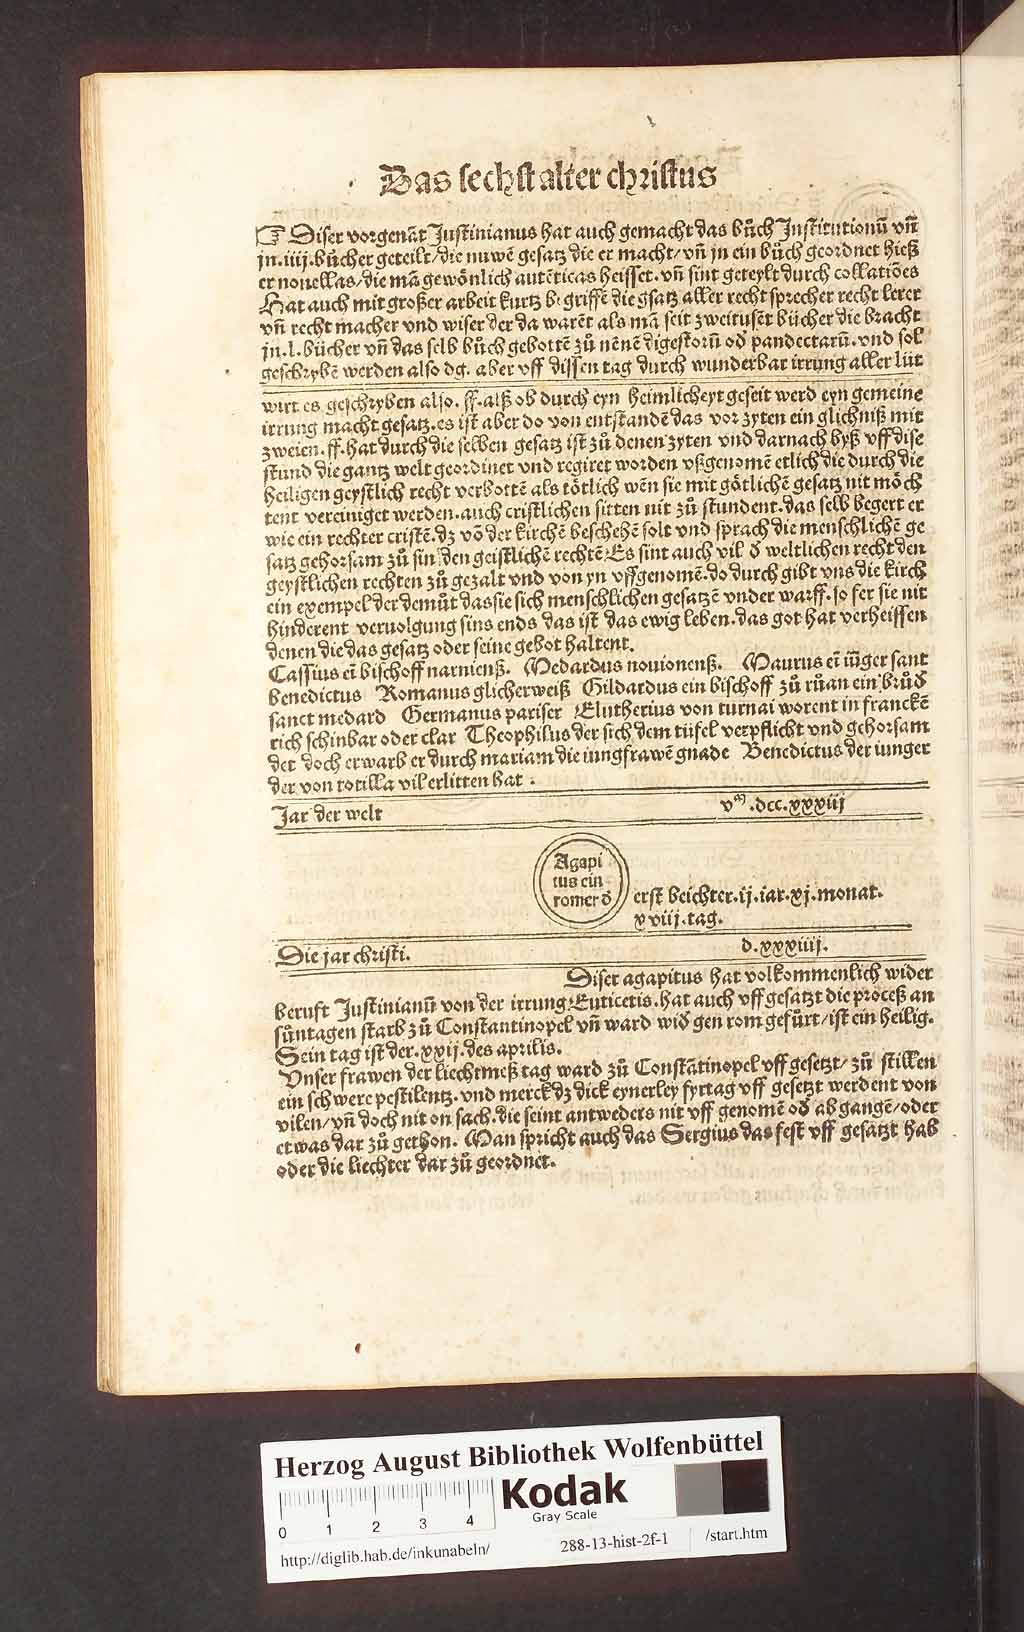 Das sechst alter christus
☞ Diser vorgenāt Justinianus hat auch gemacht das bůch Institutionū vn̄
jn .iiij. bůcher geteilt/die nuwē gesatz die er macht/vn̄ jn ein bůch geordnet hieß
er nouellas/die mā gewönlich autēticas heisset. vn̄ sint geteylt durch collatiōes
Hat auch mit großer arbeit kurtz begriffē die gsatz aller recht sprecher recht lerer
vn̄ recht macher vnd wiser der da warēt als mā seit zweitusēt bücher die bracht
jn .l. bücher vn̄ das selb bůch gebottē zů nēnē digestorū oď pandectarū. vnd sol
geschrybē werden also dg. aber vff dissen tag durch wunderbar irrung aller lüt
wirt es geschryben also. ff. alß ob durch eyn heimlicheyt geseit werd eyn gemeine
irrung macht gesatz. es ist aber do von entstandē das vor zyten ein glichniß mit
zweien. ff. hat durch die selben gesatz ist zů denen zyten vnd darnach byß vff dise
stund die gantz welt geordinet vnd regiret worden vßgenomē etlich die durch die
heiligen geystlich recht verbottē als tötlich wēn sie mit götlichē gesatz nit möch
tent vereiniget werden. auch cristlichen sitten nit zů stundent. das selb begert er
wie ein rechter cristē. dz vō der kirchē beschehē solt vnd sprach die menschlichē ge
satz gehorsam zů sin den geistlichē rechtē. Es sint auch vil ď weltlichen recht den
geystlichen rechten zů gezalt vnd von yn vffgenomē. do durch gibt vns die kirch
ein exempel der demůt das sie sich menschlichen gesatzē vnder warff. so fer sie nit
hinderent veruolgung sins ends das ist das ewig leben. das got hat verheissen
denen die das gesatz oder seine gebot haltent.
Cassius eī bischoff narnienß. Medardus nouionenß. Maurus eī iūger sant
benedictus Romanus glicherweiß Gildardus ein bischoff zů růan ein brůď
sanct medard Germanus pariser Elutherius von turnai worent in franckē
rich schinbar oder clar Theophilus der sich dem tüfel verpflicht vnd gehorsam
det doch erwarb er durch mariam die iungfrawē gnade Benedictus der iunger
der von totilla vil erlitten hat :
Jar der welt vᵐ .dcc.xxxiij
Agapi
tus ein
romer ď
erst beichter .ij. iar .xj. monat.
xviij. tag.
Die jar christi. d.xxxiiij.
Diser agapitus hat volkommenlich wider
beruft Justinianū von der irrung Euticetis. hat auch vff gesatzt die proceß an
sůntagen starb zů Constantinopel vn̄ ward wiď gen rom gefürt/ist ein heilig.
Sein tag ist der .xxij. des aprilis.
Vnser frawen der liechtmeß tag ward zů Constātinopel vff gesetzt/zů stillen
ein schwere pestilentz. vnd merck dz dick eynerley fyrtag vff gesetzt werdent von
vilen/vn̄ doch nit on sach. die seint antweders nit vff genomē oď ab gangē/oder
etwas dar zů gethon. Man spricht auch das Sergius das fest vff gesatzt hab
oder die liechter dar zů geordnet.
Herzog August Bibliothek Wolfenbüttel
Kodak
Gray Scale
0 1 2 3 4
http://diglib.hab.de/inkunabeln/ 288-13-hist-2f-1 /start.htm